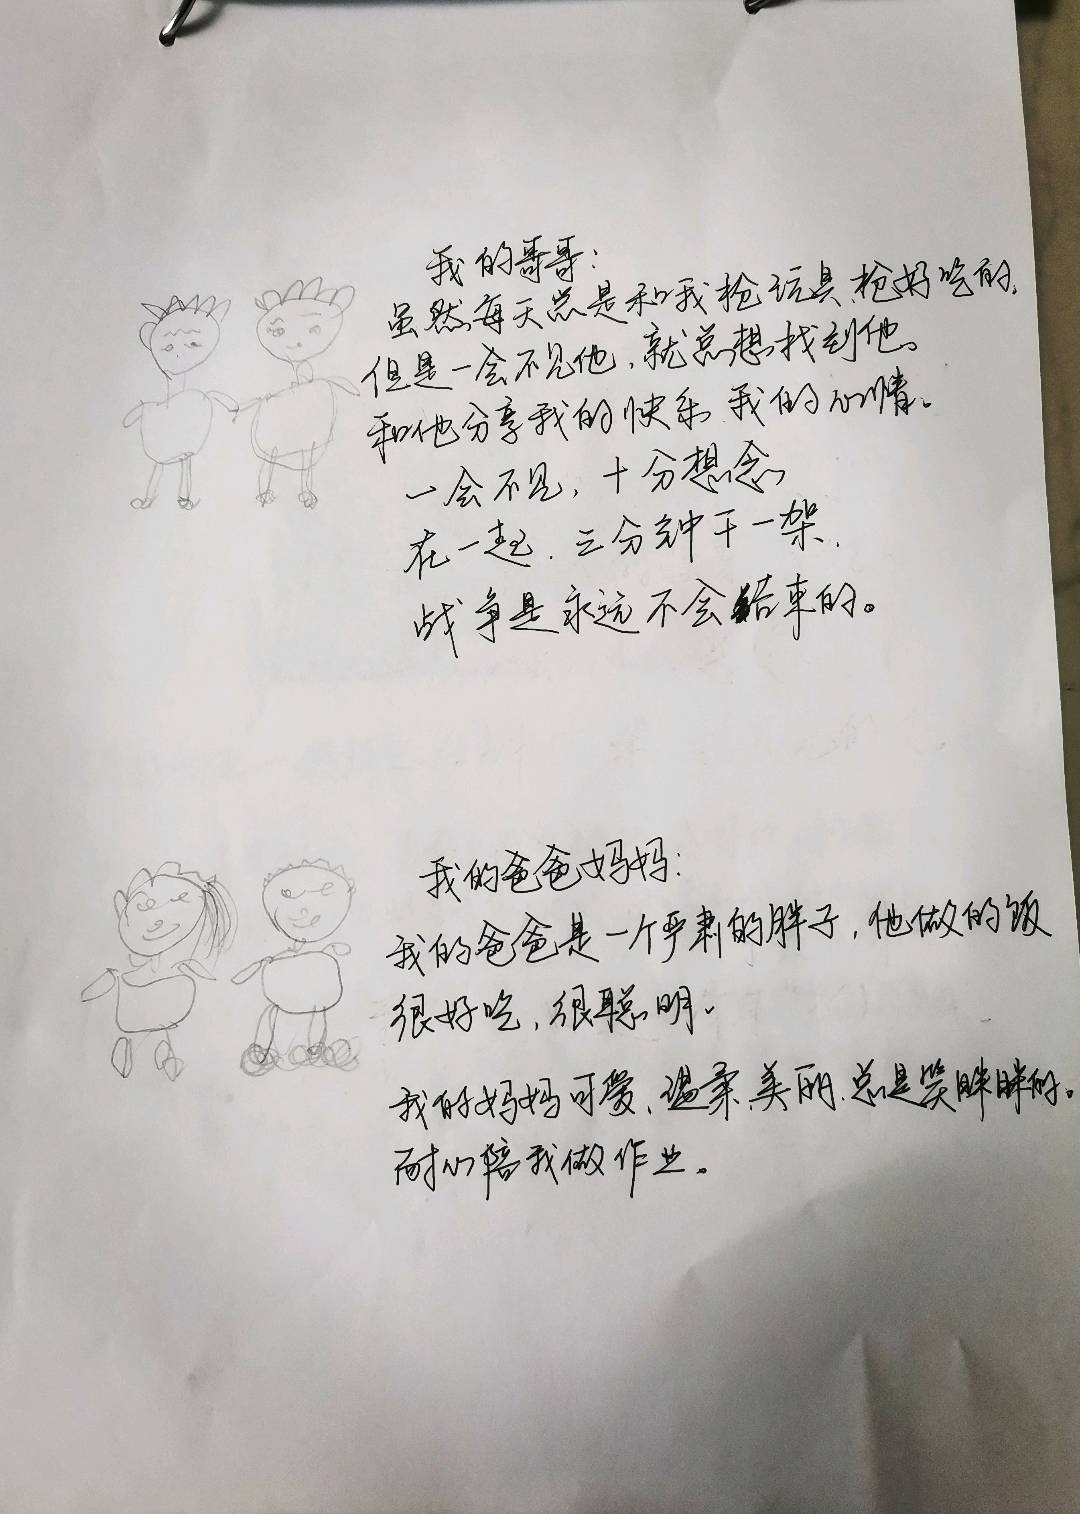 我的哥哥：
虽然每天总是和我抢玩具、抢好吃的，
但是一会不见他，就总想找到他。
和他分享我的快乐、我的心情。
一会不见，十分想念
在一起，三分钟干一架，
战争是永远不会结束的。
我的爸爸妈妈：
我的爸爸是一个严肃的胖子，他做的饭
很好吃，很聪明。
我的妈妈可爱、温柔、美丽、总是笑眯眯的。
耐心陪我做作业。